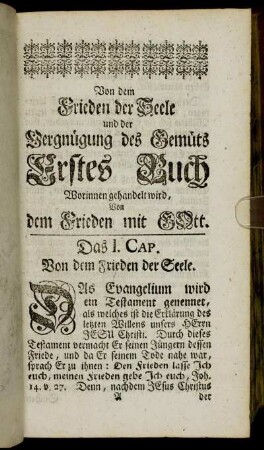 Von dem
Frieden der Seele
und der
Vergnügung des Gemüts
Erstes Buch
Worinnen gehandelt wird,
Von
dem Frieden mit GOtt.
Das I. CAP.
Von dem Frieden der Seele.
DAs Evangelium wird
ein Testament genennet,
als welches ist die Erklärung des
letzten Willens unsers HErrn
JESU Christi. Durch dieses
Testament vermacht Er seinen Jüngern dessen
Friede, und da Er seinem Tode nahe war,
sprach Er zu ihnen: Den Frieden lasse Ich
euch, meinen Frieden gebe Ich euch, Joh.
14. v. 27. Denn, nachdem JEsus Christus
A der